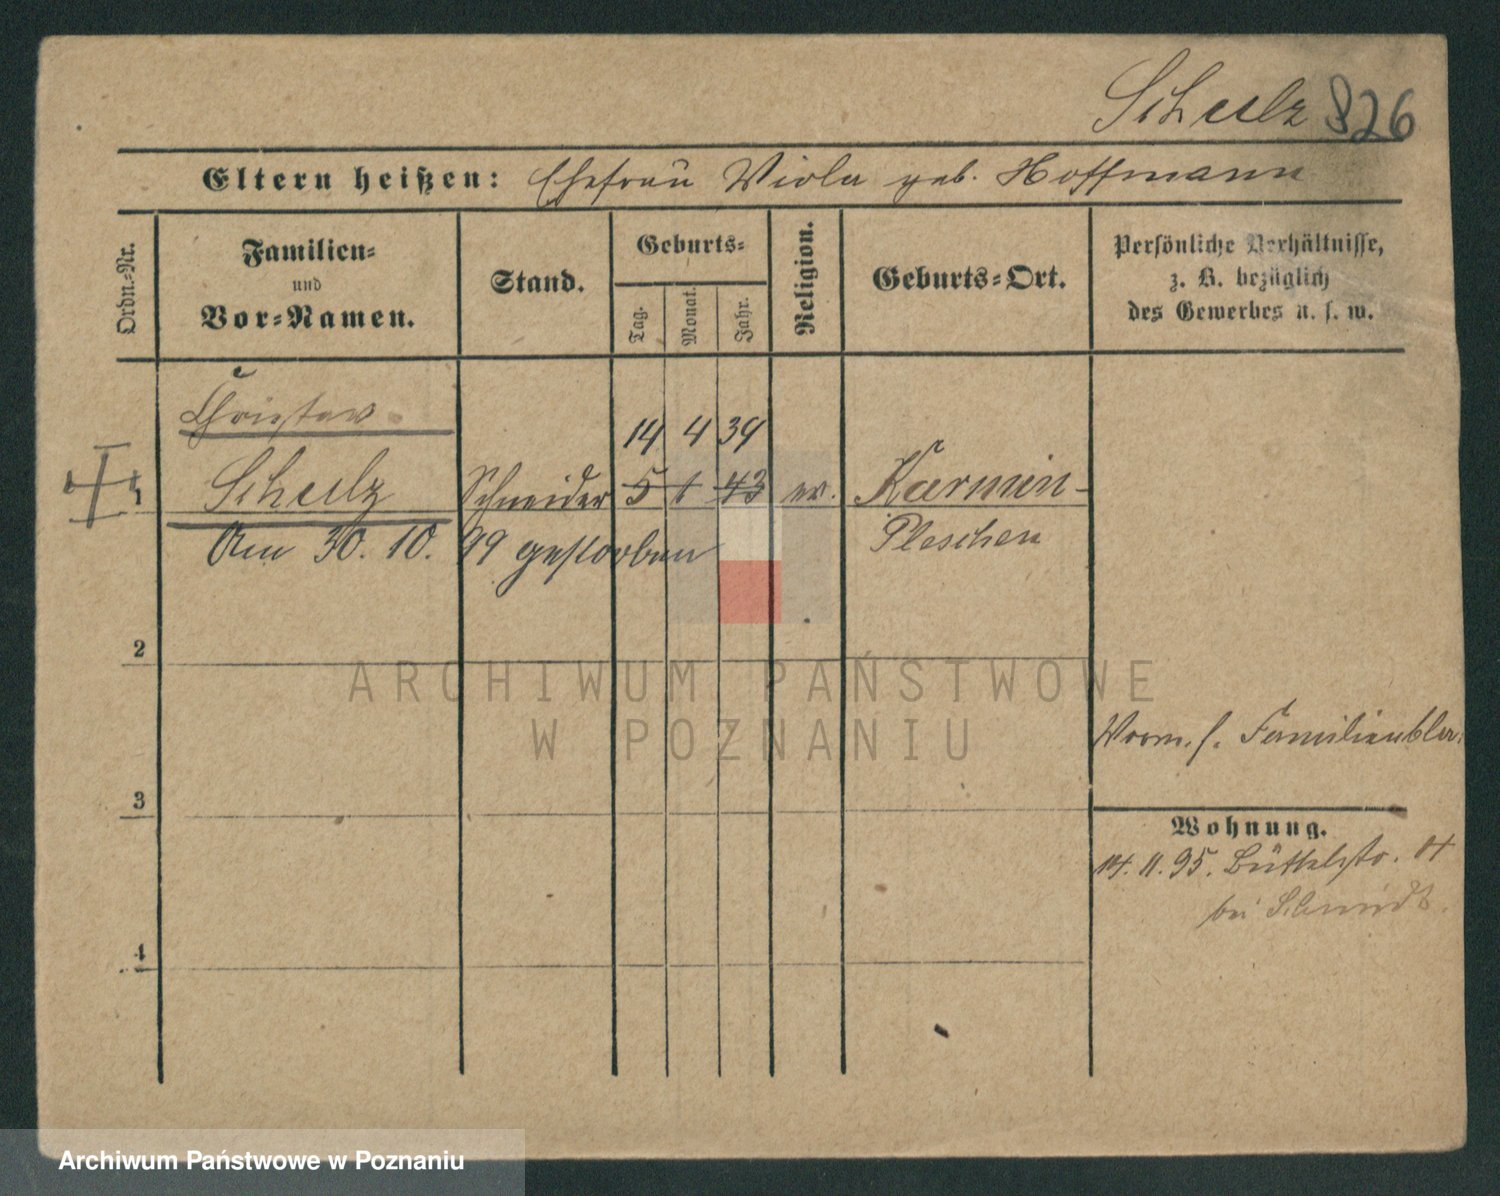 Schulz 826
Eltern heißen: Ehefrau Viola geb. Hoffmann
Ordn.-Nr.
Familien-
und
Vor-Namen.
Stand.
Geburts-
Tag.
Monat.
Jahr.
Religion.
Geburts-Ort.
Persönliche Verhältnisse,
z. B. bezüglich
des Gewerbes u. s. w.
14 4 39
1 Schulz Schneider 5 1 43 ev. Karmin-
Am 30. 10. 99 gestorben Pleschen
2
3
4
Familienbla
Wohnung.
14. 11. 95. Büttelstr. 14
bei Schmidt.
ARCHIWUM PAŃSTWOWE
W POZNANIU
Archiwum Państwowe w Poznaniu